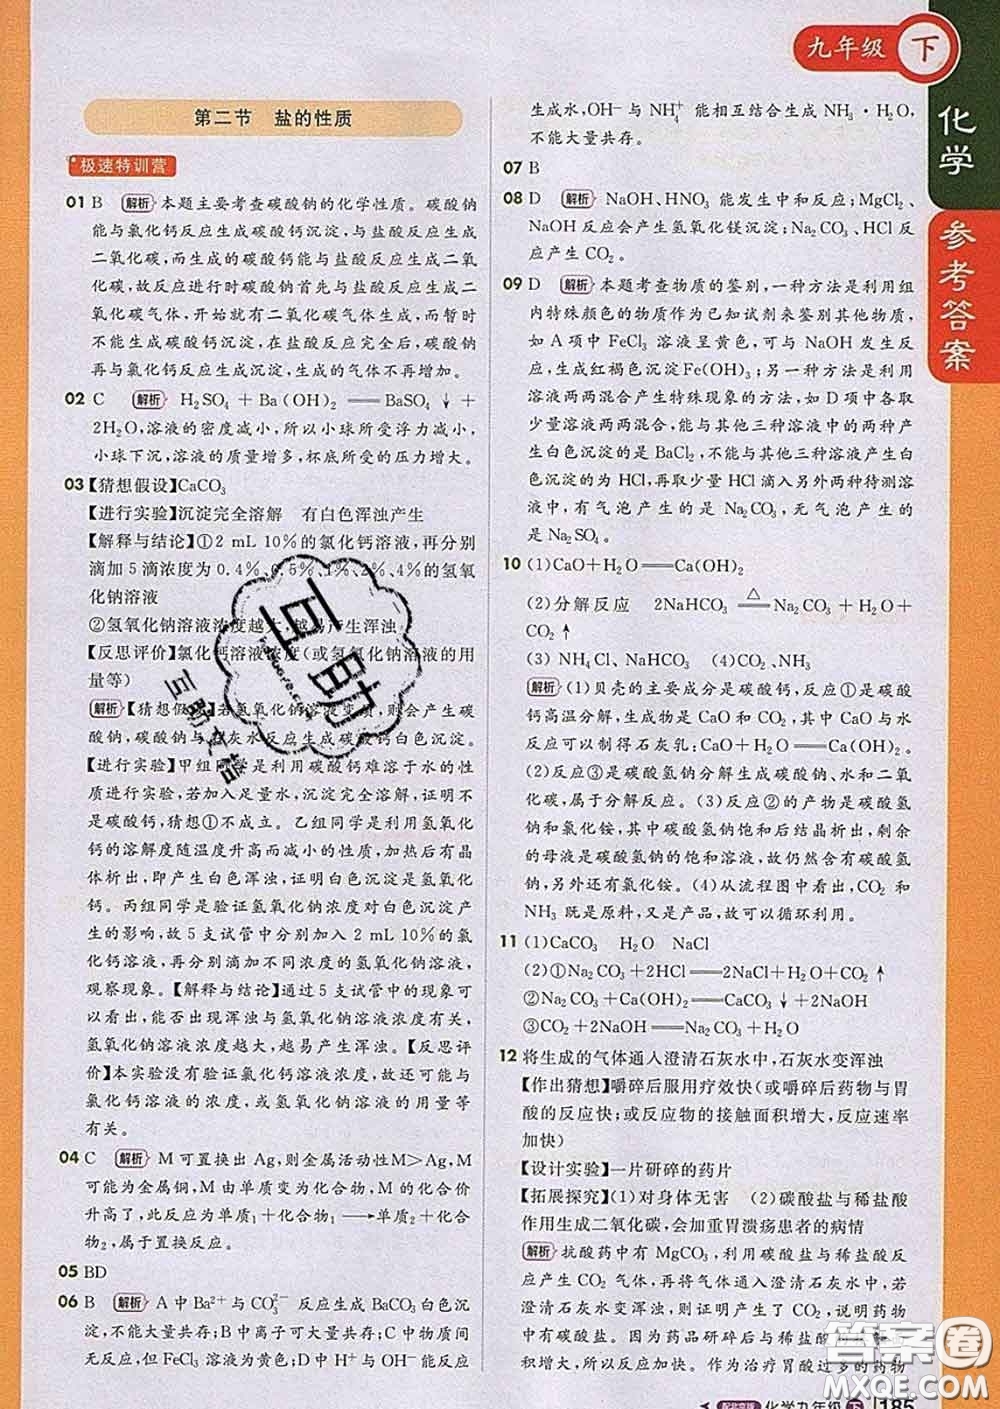 九年级 下
化学
参考答案
第二节 盐的性质
极速特训营
01 B 解析 本题主要考查碳酸钠的化学性质。碳酸钠
能与氯化钙反应生成碳酸钙沉淀，与盐酸反应生成
二氧化碳，而生成的碳酸钙能与盐酸反应生成二氧
化碳，故反应进行时碳酸钠首先与盐酸反应生成二
氧化碳气体，开始就有二氧化碳气体生成，而暂时
不能生成碳酸钙沉淀，在盐酸反应完全后，碳酸钠
再与氯化钙反应生成沉淀，生成的气体不再增加。
02 C 解析 H₂SO₄＋Ba(OH)₂══BaSO₄↓＋
2H₂O，溶液的密度减小，所以小球所受浮力减小，
小球下沉，溶液的质量增多，杯底所受的压力增大。
03【猜想假设】CaCO₃
【进行实验】沉淀完全溶解 有白色浑浊产生
【解释与结论】①2 mL 10%的氯化钙溶液，再分别
滴加5滴浓度为0.4%、0.5%、1%、2%、4%的氢氧
化钠溶液
②氢氧化钠溶液浓度越大，越易产生浑浊
【反思评价】氯化钙溶液浓度(或氢氧化钠溶液的用
量等)
解析【猜想假设】若氢氧化钠溶液变质，则会生成碳
酸钠，碳酸钠与氯化钙反应生成碳酸钙白色沉淀。
【进行实验】甲组同学是利用碳酸钙难溶于水的性
质进行实验，若加入足量水，沉淀完全溶解，证明不
是碳酸钙，猜想①不成立。乙组同学是利用氢氧化
钙的溶解度随温度升高而减小的性质，加热后有晶
体析出，即产生白色浑浊，证明白色沉淀是氢氧化
钙。丙组同学是验证氢氧化钠溶液对白色沉淀产
生的影响，故5支试管中分别加入2 mL 10%的氯
化钙溶液，再分别滴加不同浓度的氢氧化钠溶液，
观察现象。【解释与结论】通过5支试管中的现象可
以看出，能否出现浑浊与氢氧化钠溶液浓度有关，
氢氧化钠溶液浓度越大，越易产生浑浊。【反思评
价】本实验没有验证氯化钙溶液的浓度，可能还与
氯化钙溶液的浓度，或氢氧化钠溶液的用量等
有关。
04 C 解析 M可置换出Ag，则金属活动性M＞Ag，M
可能为金属铜，M由单质变为化合物，M的化合价
升高了，此反应为单质₁＋化合物₁⟶单质₂＋化合
物₂，属于置换反应。
05 BD
06 B 解析 A中Ba²⁺与CO₃²⁻反应生成BaCO₃白色沉
淀，不能大量共存；B中离子可大量共存；C中物质间
无反应，但FeCl₃溶液为黄色；D中H⁺与OH⁻能反应
生成水，OH⁻与NH₄⁺能相互结合生成NH₃·H₂O，
不能大量共存。
07 B
08 D 解析 NaOH、HNO₃能发生中和反应；MgCl₂、
NaOH反应会产生氢氧化镁沉淀；Na₂CO₃、HCl反
应产生CO₂。
09 D 解析 本题考查物质的鉴别，一种方法是利用组
内特殊颜色的物质作为已知试剂来鉴别其他物质，
如A项中FeCl₃溶液呈黄色，可与NaOH发生反
应，生成红褐色沉淀Fe(OH)₃；另一种方法是利用
溶液两两混合产生特殊现象的方法，如D项中各取
少量溶液两两混合，能与其他三种溶液中的两种产
生白色沉淀的是BaCl₂，不能与其他三种溶液产生
沉淀的为HCl，再取少量HCl滴入另外两种待测溶
液中，有气泡产生的是Na₂CO₃，无气泡产生的
是Na₂SO₄。
10 (1)CaO＋H₂O══Ca(OH)₂
(2)分解反应 2NaHCO₃ ══△ Na₂CO₃＋H₂O＋
CO₂↑
(3)NH₄Cl、NaHCO₃ (4)CO₂、NH₃
解析 (1)贝壳的主要成分是碳酸钙，反应①是碳酸
钙高温分解，生成物是CaO和CO₂，其中CaO与水反
应可以制得石灰乳：CaO＋H₂O══Ca(OH)₂。
(2)反应③是碳酸氢钠分解生成碳酸钠、水和二氧
化碳，属于分解反应。(3)反应②的产物是碳酸氢
钠和氯化铵，其中碳酸氢钠饱和后结晶析出，剩余
的母液是碳酸氢钠的饱和溶液，故仍然含有碳酸氢
钠，另外还有氯化铵。(4)从流程图中看出，CO₂和
NH₃既是原料，又是产品，故可以循环利用。
11 (1)CaCO₃ H₂O NaCl
(2)①Na₂CO₃＋2HCl══2NaCl＋H₂O＋CO₂↑
②Na₂CO₃＋Ca(OH)₂══CaCO₃↓＋2NaOH
③CO₂＋2NaOH══Na₂CO₃＋H₂O
12 将生成的气体通入澄清石灰水中，石灰水变浑浊
【作出猜想】嚼碎后服用疗效快(或嚼碎后药物与胃
酸的反应快；或反应物的接触面积增大，反应速率
加快)
【设计实验】一片研碎的药片
【拓展探究】(1)对身体无害 (2)碳酸盐与稀盐酸
作用生成二氧化碳，会加重胃溃疡患者的病情
解析 抗酸药中有MgCO₃，利用碳酸盐与稀盐酸反
应产生CO₂气体，再将气体通入澄清石灰水中，若
澄清石灰水变浑浊，则证明产生了CO₂，说明药物
中有碳酸盐。因为药品研碎后与稀盐酸
积增大，所以反应加快。作为治疗胃酸过多的药
配北京版 化学九年级 下 185
互助文指
答案圈
MXQE.COM